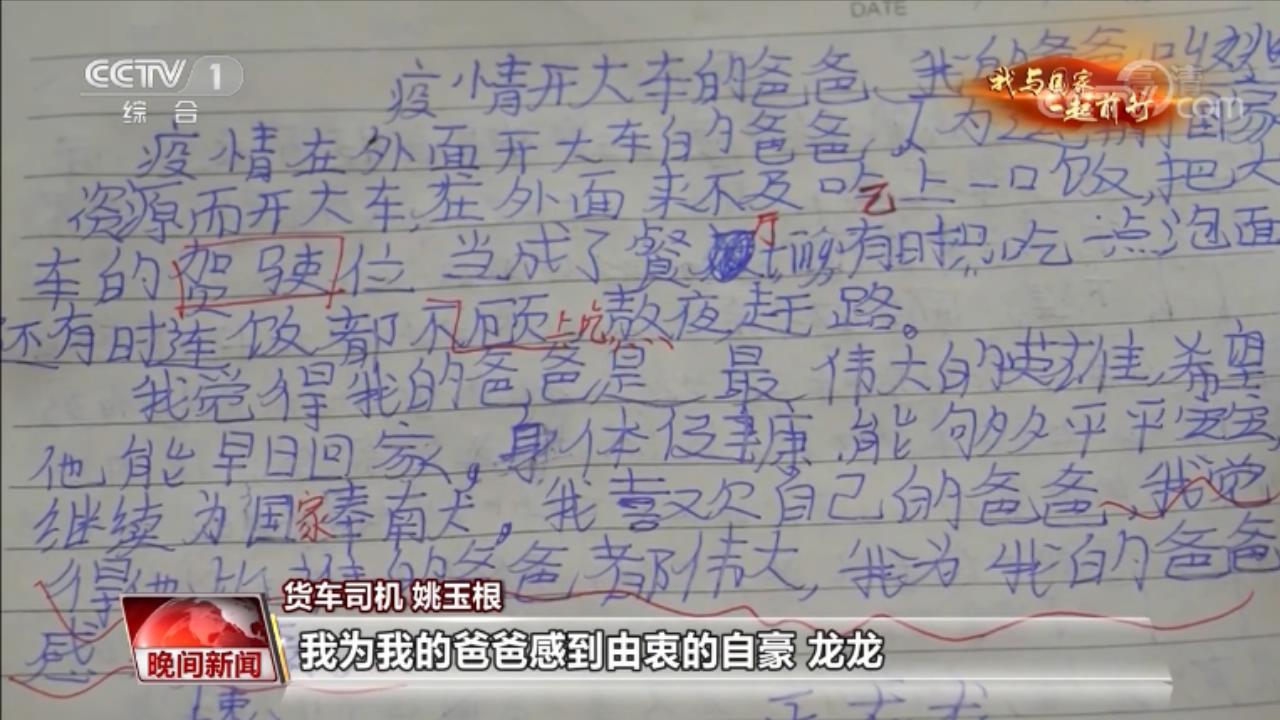 DATE
CCTV 1
综合
我与国家
一起前行
高清
com
疫情开大车的爸爸、我的爸爸叫
疫情在外面开大车的爸爸,人为国家
资源而开大车,在外面来不及吃上一口饭,把大
车的驾驶位当成了餐厅 有时只吃一点泡面
还有时连饭都不顾上吃熬夜赶路。
我觉得我的爸爸是最伟大的英雄,希望
他能早日回家,身体健康,能够多多平平安安
继续为国家奉南犬。我喜欢自己的爸爸,我觉
得他比谁的爸爸都伟大,我为我的爸爸
感
货车司机 姚玉根
晚间新闻
我为我的爸爸感到由衷的自豪 龙龙